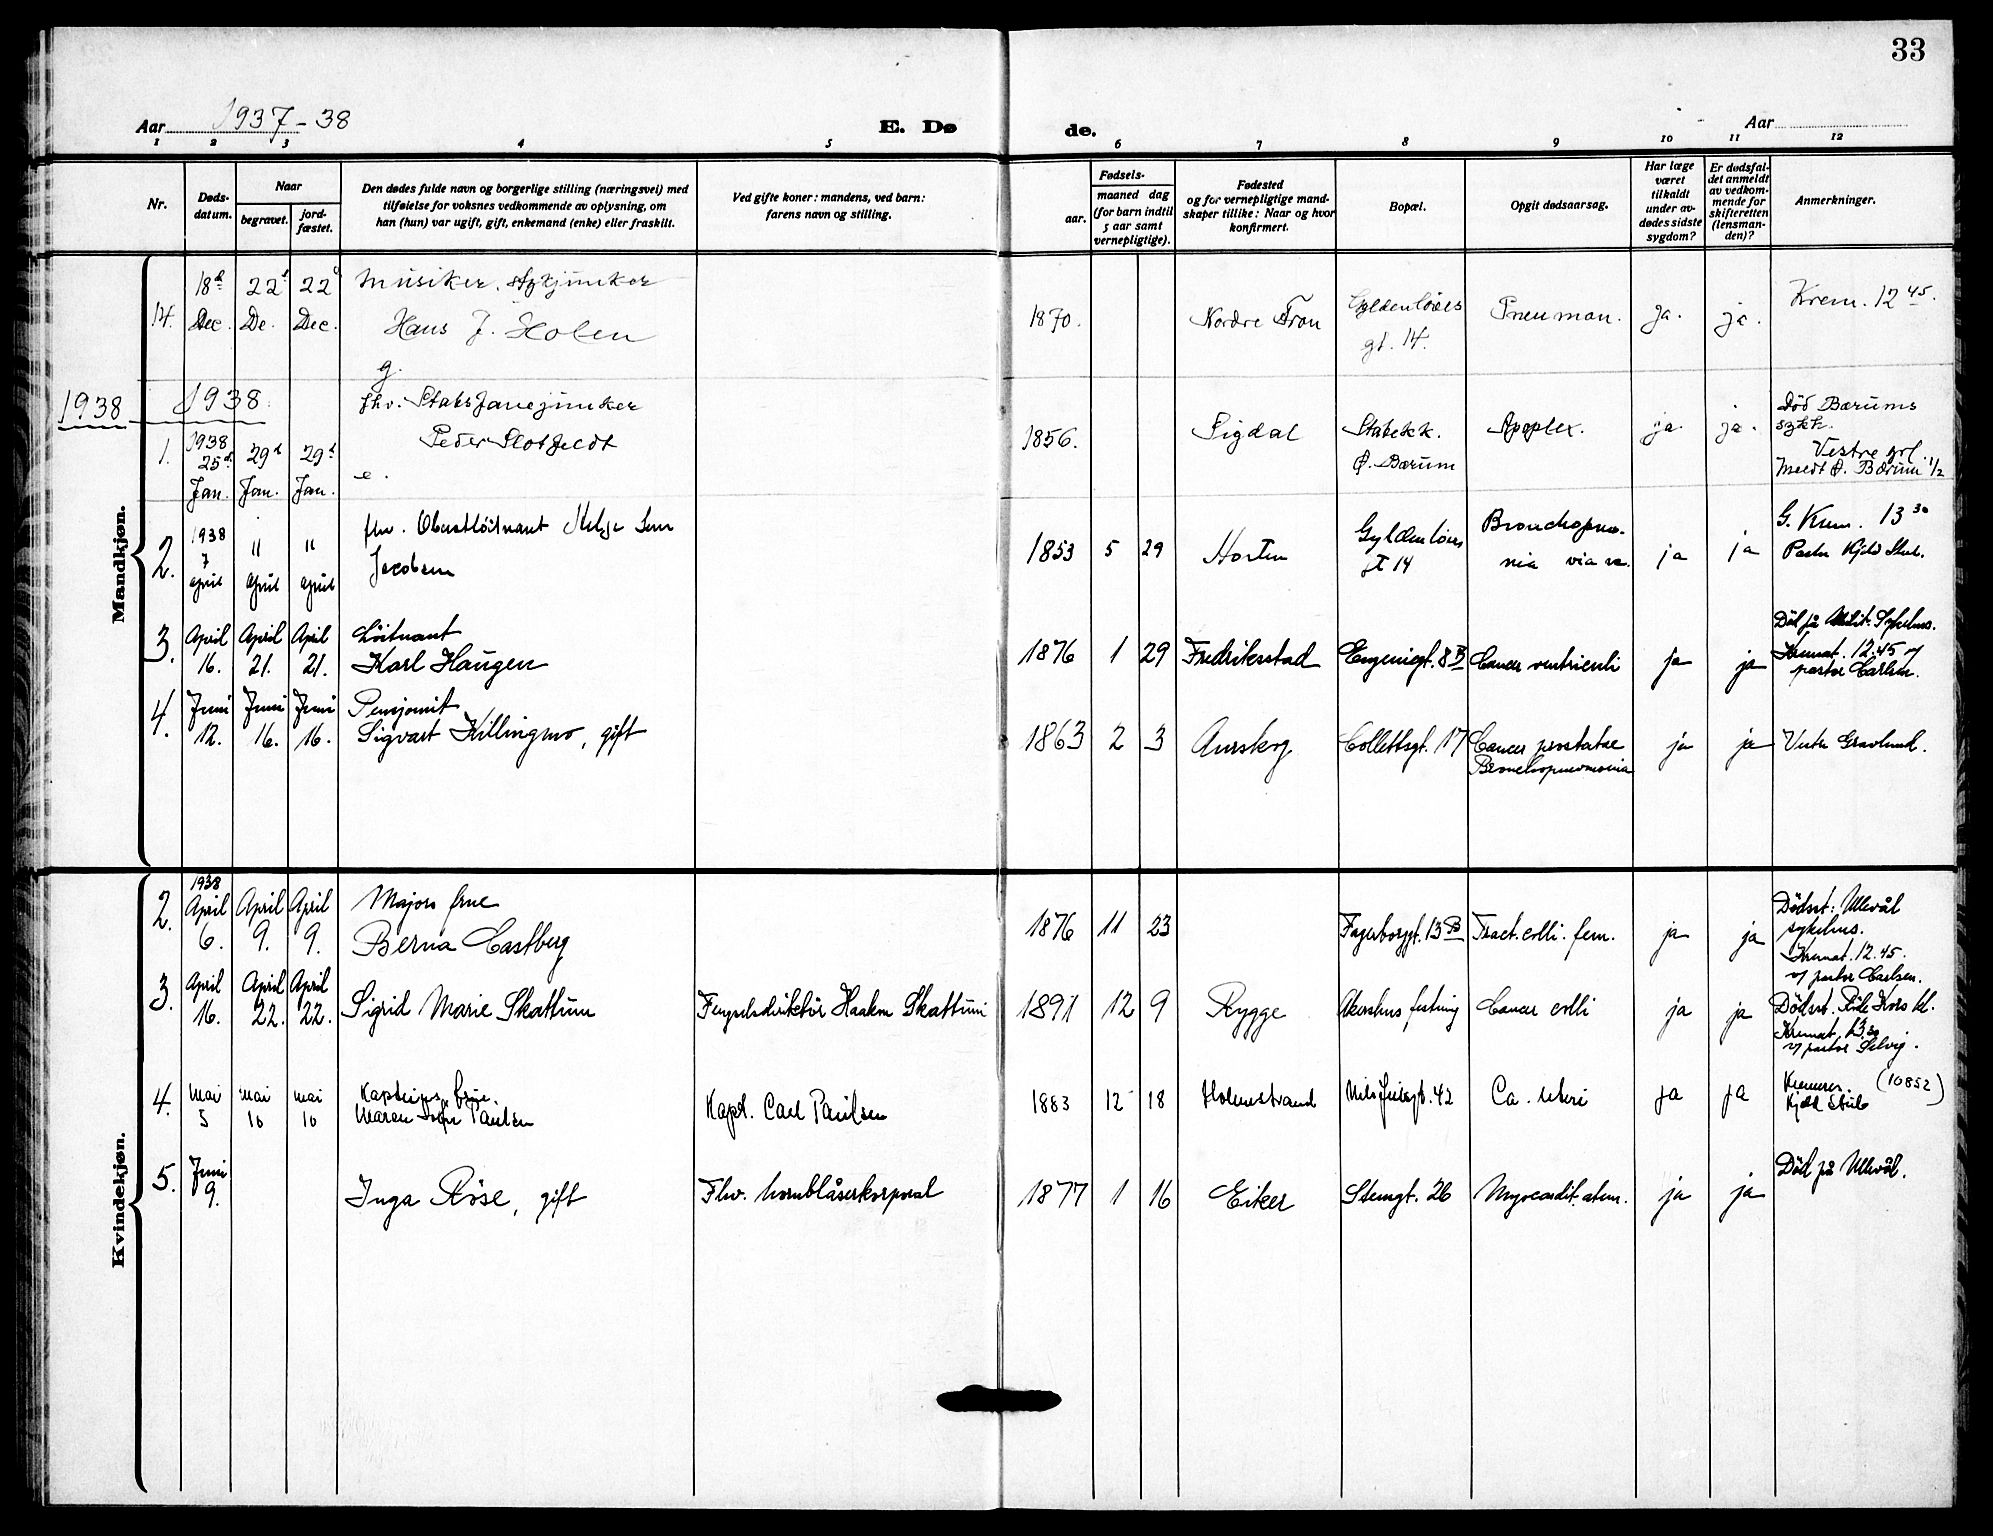 33
Aar 1937-38
E. Dø
de.
Aar
1 2 3 4 5 6 7 8 9 10 11 12
Nr.
Døds-
datum.
Naar
begravet.
jord-
fæstet.
Den dødes fulde navn og borgerlige stilling (næringsvei) med
tilføielse for voksnes vedkommende av oplysning, om
han (hun) var ugift, gift, enkemand (enke) eller fraskilt.
Ved gifte koner: mandens, ved barn:
farens navn og stilling.
Fødsels-
aar.
maaned dag
(for barn indtil
5 aar samt
vernepligtige).
Fødested
og for vernepligtige mand-
skaper tillike: Naar og hvor
konfirmert.
Bopæl.
Opgit dødsaarsag.
Har læge
været
tilkaldt
under av-
dødes sidste
sygdom?
Er dødsfal-
det anmeldt
av vedkom-
mende for
skifteretten
(lensman-
den)?
Anmerkninger.
Mandkjøn.
14. 18d Dec. 22d De. 22d Dec.
Musiker.
Hans J. Holen
g.
1870. Nordre Fron
Gyldenløves
gt. 14.
Pneumon. ja. ja.
Krem. 12 45.
1938
1938
1. 1938 25d Jan. 29d Jan. 29d Jan.
fhv. Stabsfanejunker
Peder Slotfeldt
e.
1856. Sigdal
Stabekk.
Ø. Bærum
Apoplex. ja. ja.
Død Bærums
sykh.
Vestre grl.
Meldt Ø. Bærum 1/2
2. 1938 7 april " april " april
fhv. Oberstløitnant Helge
Jacobsen
1853 5 29 Horten
Gyldenløves
gt 14
Bronchopneu-
nia ja ja
G. Krem. 13 30
Pastor Kjeld Stub.
3. April 16. April 21. April 21.
Løitnant
Karl Haugen
1876 1 29 Fredriksstad Eugeniegt. 8 B Cancer ventriculi ja ja
Død på Milit. Sykehus.
Kremat. 12.45 v/
pastor Carlsen.
4. Juni 12. Juni 16. Juni 16.
Pensjonist
Sigvart Killingmo, gift
1863 2 3 Aurskog Collettsgt. 17
Cancer prostatae
Bronchopneumonia
ja ja Vestre Gravlund.
Kvindekjøn.
2. 1938 April 6. April 9. April 9.
Majors frue
Berna Castberg
1876 11 23 Fagerborggt. 13 B Fract. colli. fem. ja ja
Dødsst: Ullevål
sykehus.
Kremat. 12.45.
v/ pastor Carlsen.
3. April 16. April 22. April 22.
Sigrid Marie Skattum Fengselsdirektør Haakon Skattum
1891 12 9 Rygge Akershus festning Cancer colli ja ja
Dødsst. Røde Kors kl.
Kremat. 13.30
v/ pastor Selvig.
4. Mai 5 mai 10 mai 10
Kapteins frue.
Maren Paulsen Kapt. Carl Paulsen
1883 12 18 Holmestrand Nils Juelsgt. 42 Ca. Uteri ja ja
(10852)
Kjeld Stub
5. Juni 9.
Inga Röse, gift Fhv. hornblåserkorporal
1877 1 16 Eiker Stensgt. 26 Myocardit. ja ja
Død på Ullevål.